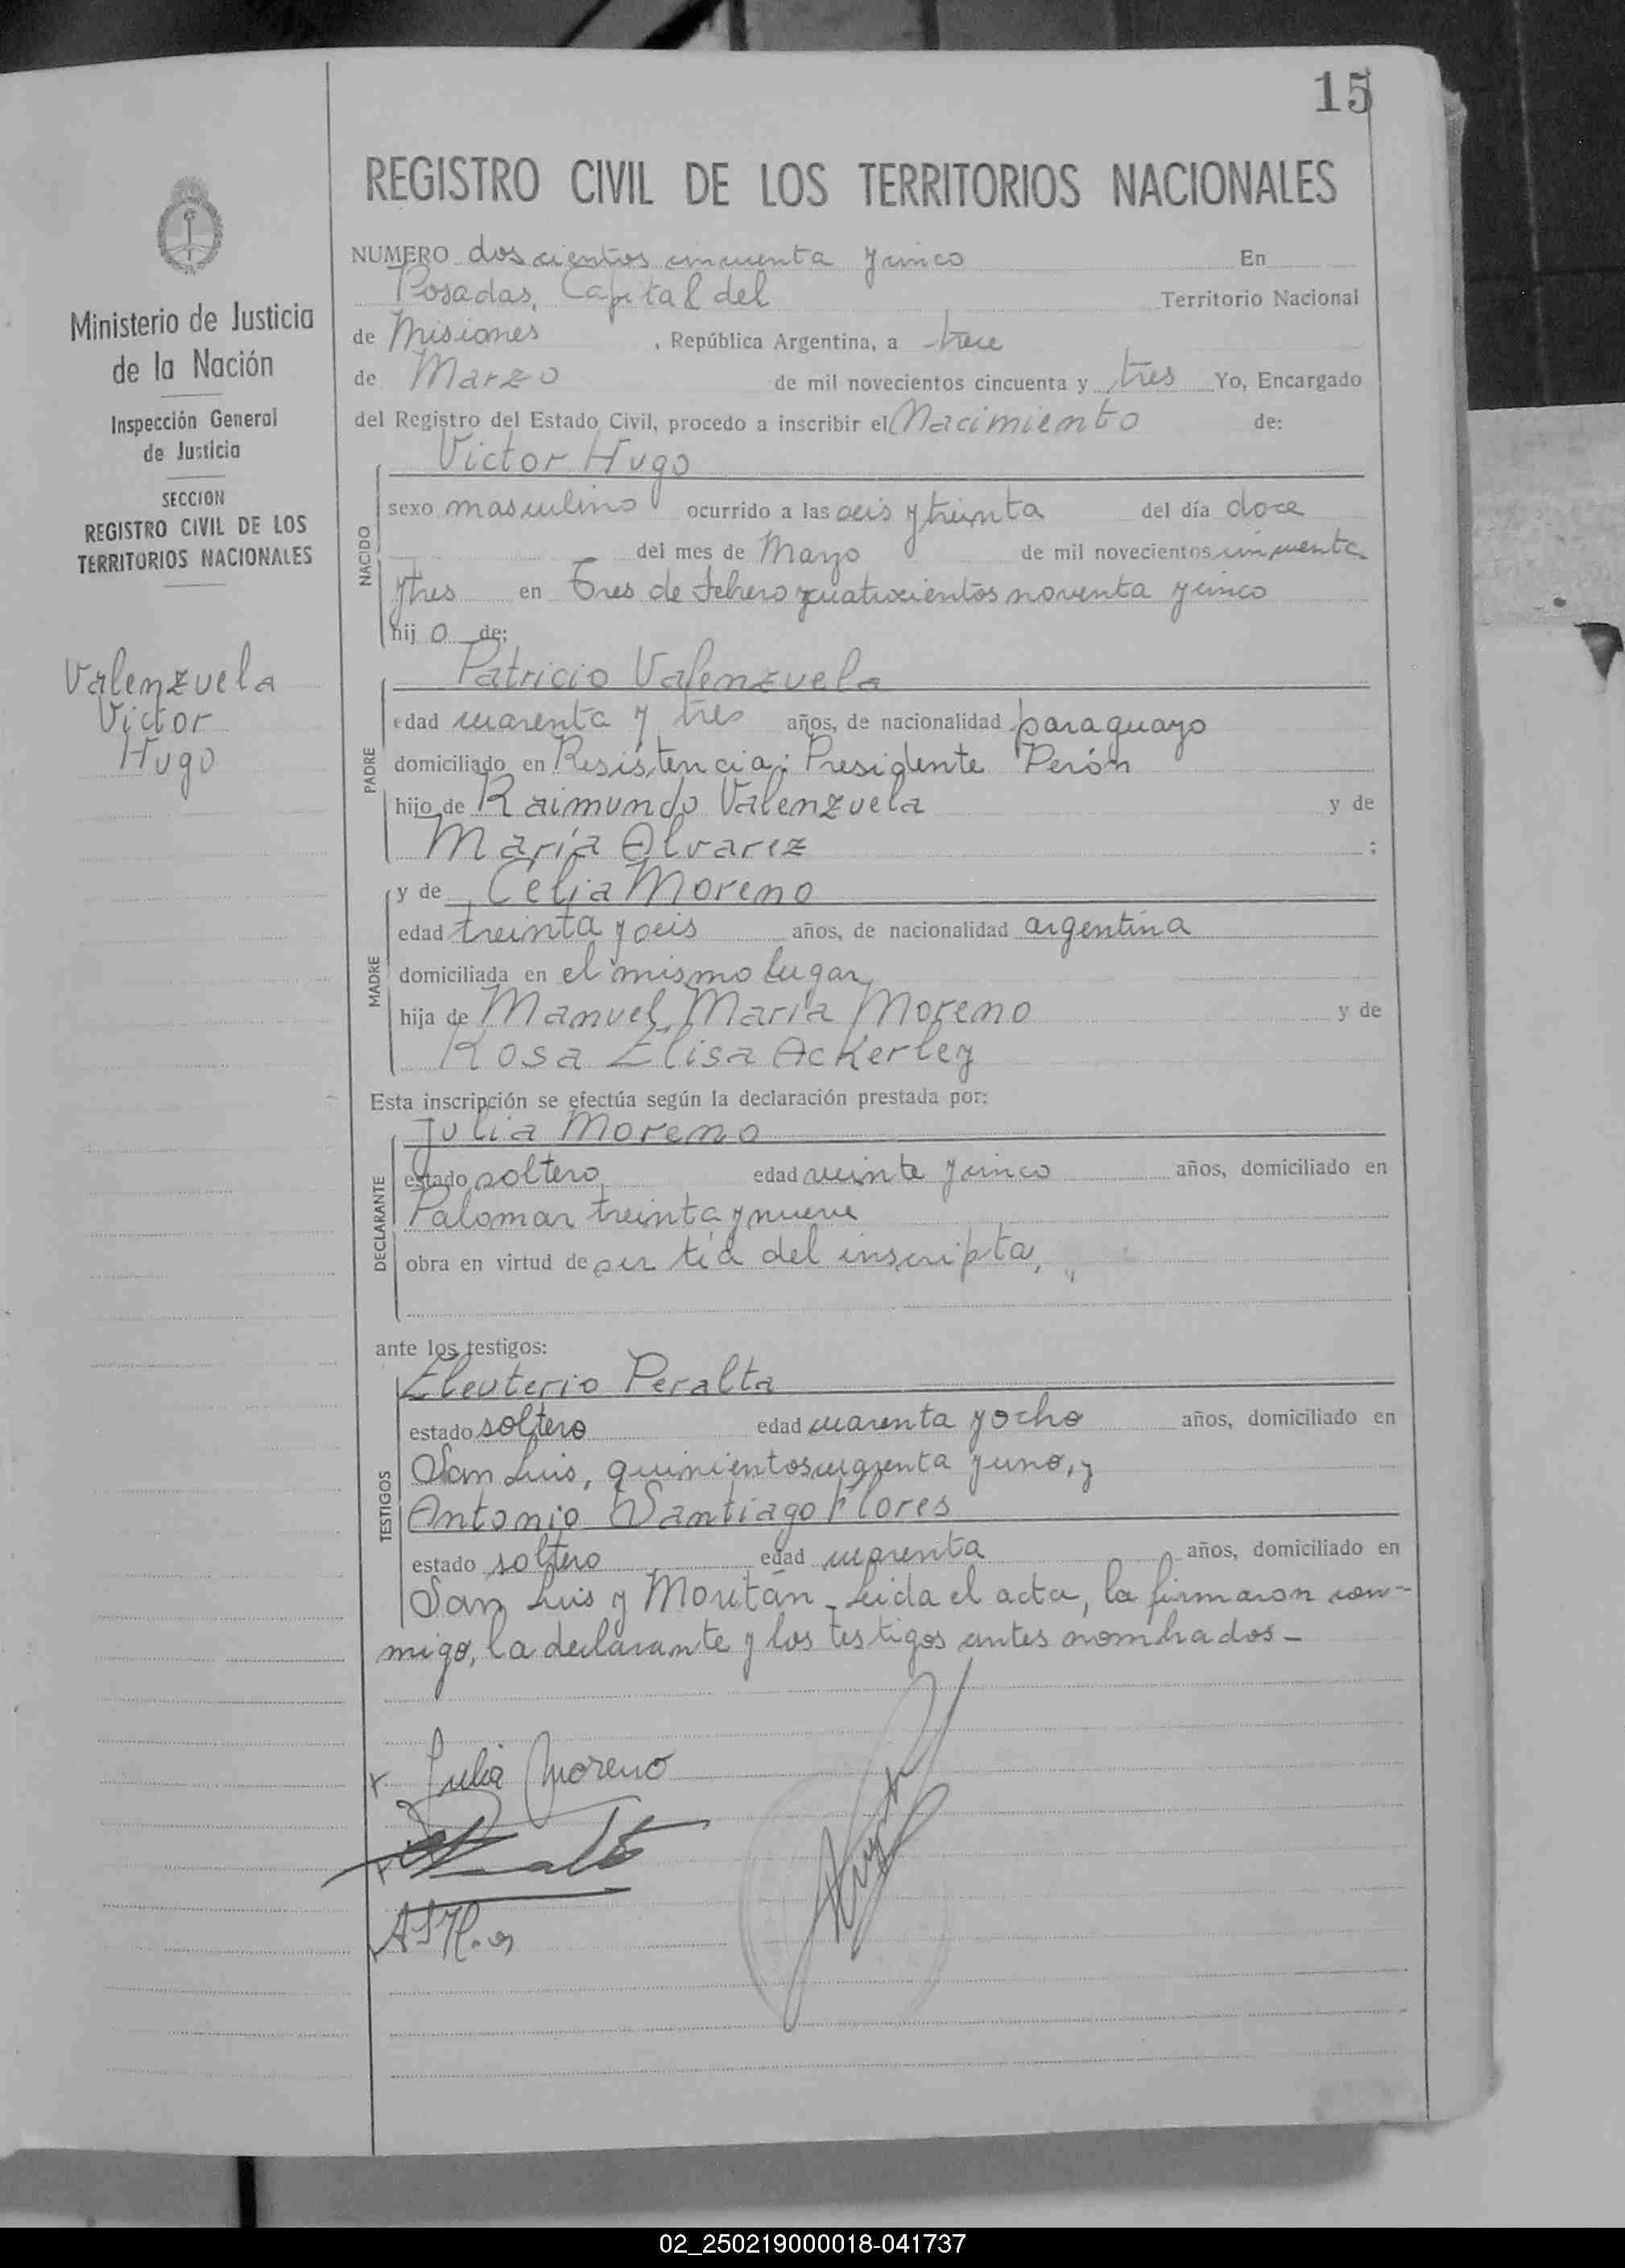 15
REGISTRO CIVIL DE LOS TERRITORIOS NACIONALES
Ministerio de Justicia
de la Nación
Inspección General
de Justicia
SECCION
REGISTRO CIVIL DE LOS
TERRITORIOS NACIONALES
Valenzuela
Victor
Hugo
NUMERO doscientos cincuenta y cinco En
Posadas, Capital del Territorio Nacional
de Misiones, República Argentina, a trece
de Marzo de mil novecientos cincuenta y tres Yo, Encargado
del Registro del Estado Civil, procedo a inscribir el Nacimiento de:
Victor Hugo
NACIDO
sexo masculino ocurrido a las seis y treinta del día doce
del mes de Mayo de mil novecientos cincuenta
y tres en Tres de Febrero y cuatrocientos noventa y cinco
hij o de:
Patricio Valenzuela
PADRE
edad cuarenta y tres años, de nacionalidad paraguayo
domiciliado en Resistencia; Presidente Perón
hijo de Raimundo Valenzuela y de
María Alvarez ;
y de Celia Moreno
MADRE
edad treinta y seis años, de nacionalidad argentina
domiciliada en el mismo lugar
hija de Manuel María Moreno y de
Rosa Elisa Ackerley
Esta inscripción se efectúa según la declaración prestada por:
Julia Moreno
DECLARANTE
estado soltero edad veinte y cinco años, domiciliado en
Palomar treinta y nueve
obra en virtud de ser tía del inscripta,
ante los testigos:
Eleuterio Peralta
TESTIGOS
estado soltero edad cuarenta y ocho años, domiciliado en
San Luis, quinientos cuarenta y uno, y
Antonio Santiago Flores
estado soltero edad cuarenta años, domiciliado en
San Luis y Moután_ Leida el acta, la firmaron con-
migo, la declarante y los testigos antes nombrados_
Julia Moreno
02_250219000018-041737